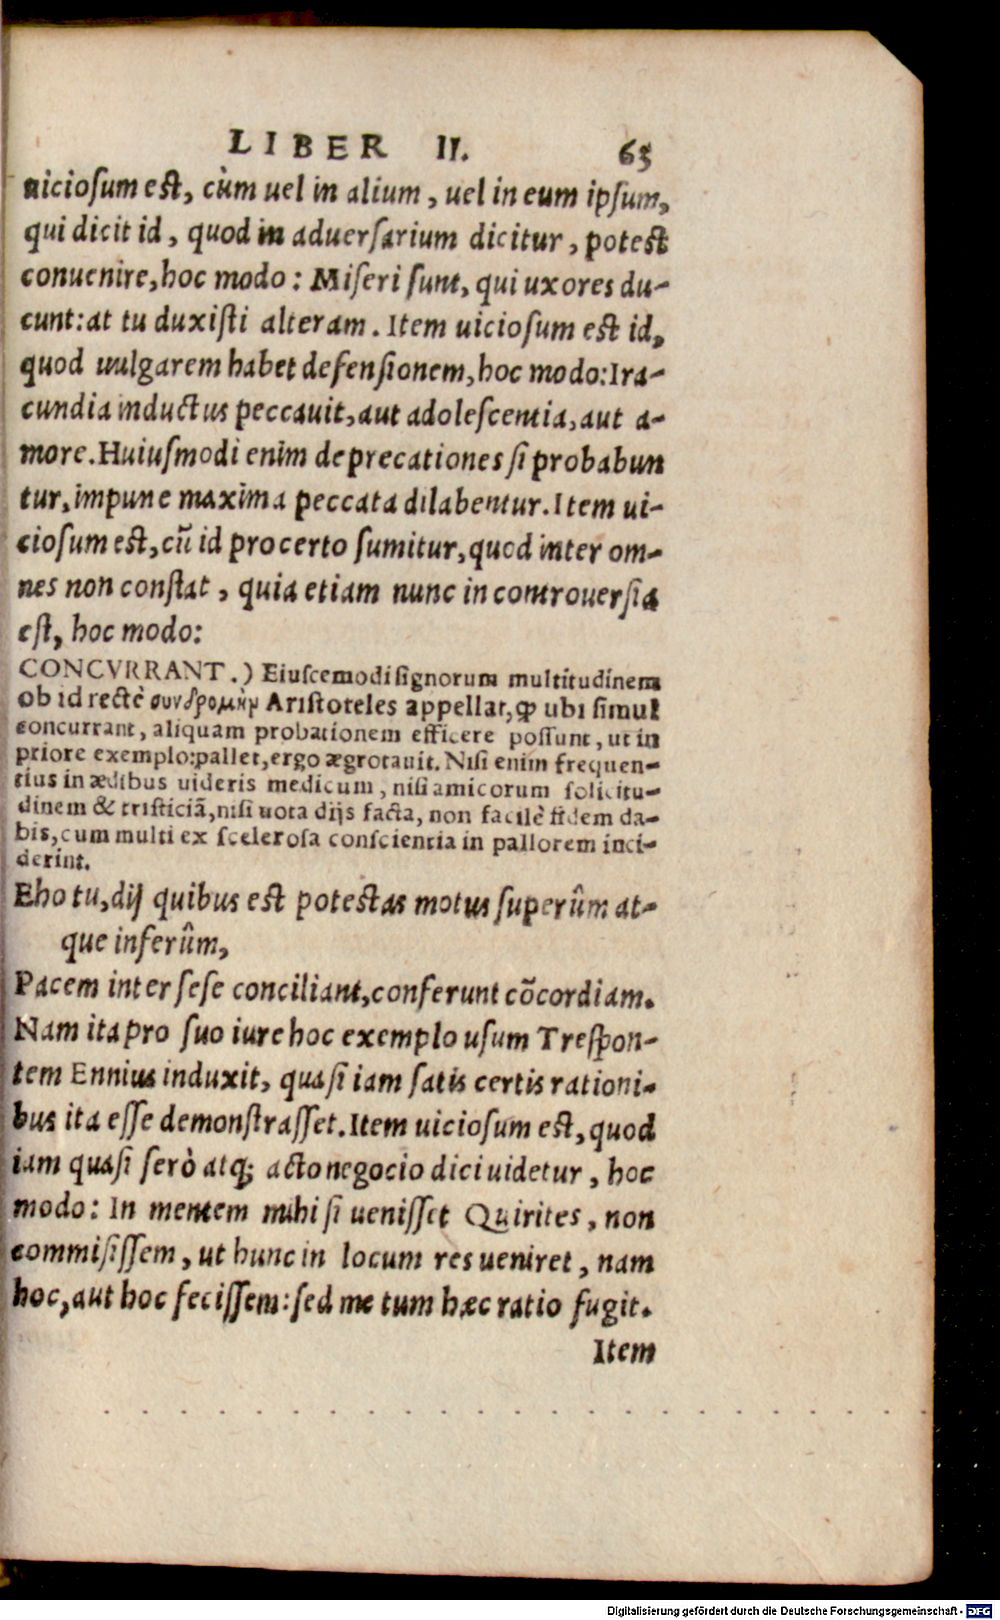 LIBER II. 63
uiciosum est, cùm uel in alium, uel in eum ipsum,
qui dicit id, quod in aduersarium dicitur, potest
conuenire, hoc modo: Miseri sunt, qui uxores du-
cunt: at tu duxisti alteram. Item uiciosum est id,
quod uulgarem habet defensionem, hoc modo: Ira-
cundia inductus peccauit, aut adolescentia, aut a-
more. Huiusmodi enim deprecationes si probabun
tur, impune maxima peccata dilabentur. Item ui-
ciosum est, cũ id pro certo sumitur, quod inter om-
nes non constat, quia etiam nunc in controuersia
est, hoc modo:
CONCVRRANT.) Eiuscemodi signorum multitudinem
ob id rectè συνδρομὴν Aristoteles appellat, ꝙ ubi simul
concurrant, aliquam probationem efficere possunt, ut in
priore exemplo: pallet, ergo ægrotauit. Nisi enim frequen-
tius in ædibus uideris medicum, nisi amicorum solicitu-
dinem & tristiciã, nisi uota dijs facta, non facilè fidem da-
bis, cum multi ex scelerosa conscientia in pallorem inci-
derint.
Eho tu, dij quibus est potestas motus superûm at-
que inferûm,
Pacem inter sese conciliant, conferunt cõcordiam.
Nam ita pro suo iure hoc exemplo usum Trespon-
tem Ennius induxit, quasi iam satis certis rationi-
bus ita esse demonstrasset. Item uiciosum est, quod
iam quasi serò atq; acto negocio dici uidetur, hoc
modo: In mentem mihi si uenisset Quirites, non
commisissem, ut hunc in locum res ueniret, nam
hoc, aut hoc fecissem: sed me tum hæc ratio fugit.
Item
Digitalisierung gefördert durch die Deutsche Forschungsgemeinschaft - DFG